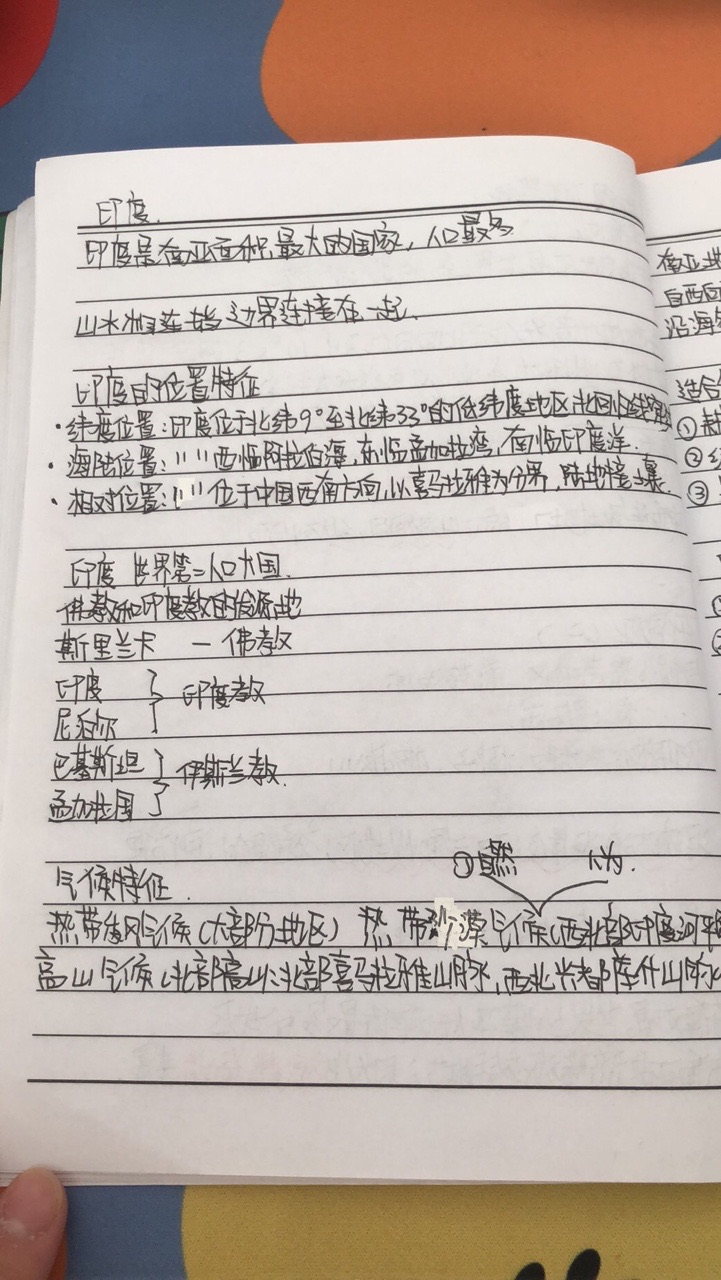 印度
印度是南亚面积最大的国家，人口最多
山水相连 边界连接在一起.
印度的位置特征
·纬度位置:印度位于北纬9°至北纬33°的低纬度地区北回归线
·海陆位置:〃〃西临阿拉伯海,东临孟加拉湾,南临印度洋.
·相对位置:〃〃位于中国西南方向,以喜马拉雅为分界,陆地接壤.
印度 世界第二人口大国.
佛教和印度教的发源地
斯里兰卡 — 佛教
印度 } 印度教
尼泊尔
巴基斯坦 } 伊斯兰教.
孟加拉国
①自然 人为.
气候特征
热带季风气候(大部分地区) 热带沙漠气候(西北部印度河平
高山气候(北部高山:北部喜马拉雅山脉,西北兴都库什山脉
南亚地
自西向
沿海
适合
①
②
③